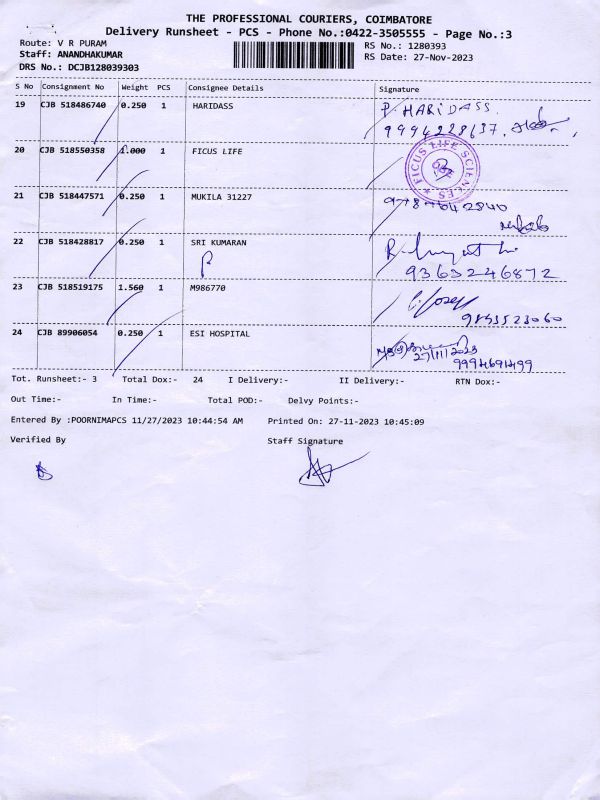 THE PROFESSIONAL COURIERS, COIMBATORE
Delivery Runsheet - PCS - Phone No.:0422-3505555 - Page No.:3
Route: V R PURAM
RS No.: 1280393
Staff: ANANDHAKUMAR
RS Date: 27-Nov-2023
DRS No.: DCJB128039303
S No Consignment No Weight PCS Consignee Details Signature
19 CJB 518486740 0.250 1 HARIDASS P. HARIDASS
9994228637
20 CJB 518550358 1.000 1 FICUS LIFE FICUS LIFE SCIENCES
21 CJB 518447571 0.250 1 MUKILA 31227
22 CJB 518428817 0.250 1 SRI KUMARAN
9363246872
23 CJB 518519175 1.560 1 M986770
24 CJB 89906054 0.250 1 ESI HOSPITAL
27/11/2023
9994691499
Tot. Runsheet:- 3 Total Dox:- 24 I Delivery:- II Delivery:- RTN Dox:-
Out Time:- In Time:- Total POD:- Delvy Points:-
Entered By :POORNIMAPCS 11/27/2023 10:44:54 AM Printed On: 27-11-2023 10:45:09
Verified By Staff Signature